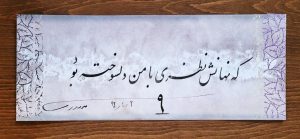 که نهانش نظری با من دلسوخته بود
۹